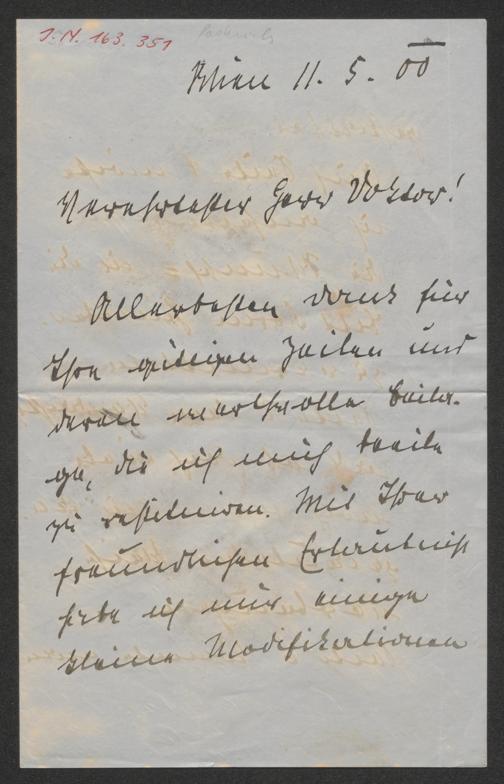 J.N. 163.351
Wien 11. 5. 00
Verehrtester Herr Doktor!
Allerbesten Dank für
Ihre gütigen Zeilen und
deren werthvolle Beila-
ge, die ich mich beeile
zu restituiren. Mit Ihrer
freundlichen Erlaubniß
habe ich mir einige
kleine Modifikationen